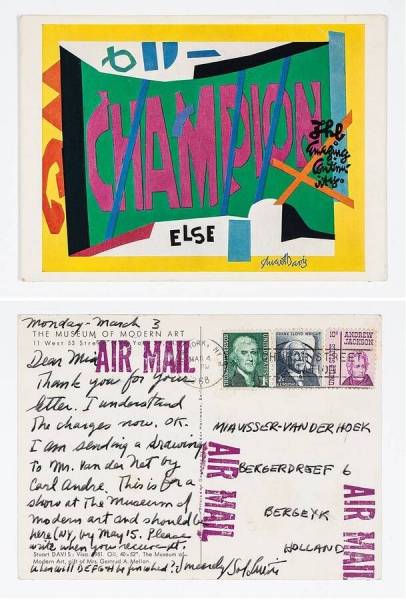 CHAMPION
The
Amazing
Continu
ity
ELSE
Stuart Davis
Monday - March 3
THE MUSEUM OF MODERN ART
11 West 53 Street York
Dear Mia
AIR MAIL
Thank you for your
letter. I understand
the changes now. OK.
I am sending a drawing
to Mr. Van der Net by
Carl Andre. This is for a
show at the Museum of
modern art and should be
here (NY) by May 15. Please
write when you receive it.
Stuart DAVIS: Visa. 1951. Oil, 40 x 52". The Museum of
Modern Art, gift of Mrs. Gertrud A. Mellon.
When will DEFGH be finished? Sincerely Sol Lewitt
YORK, N.Y.
MAR 4
68
FRANK LLOYD WRIGHT
10¢ ANDREW
JACKSON
STREET
MIA VISSER-VAN DER HOEK
BERGERDREEF 6
BERGEYK
HOLLAND
AIR MAIL
AIR MAIL